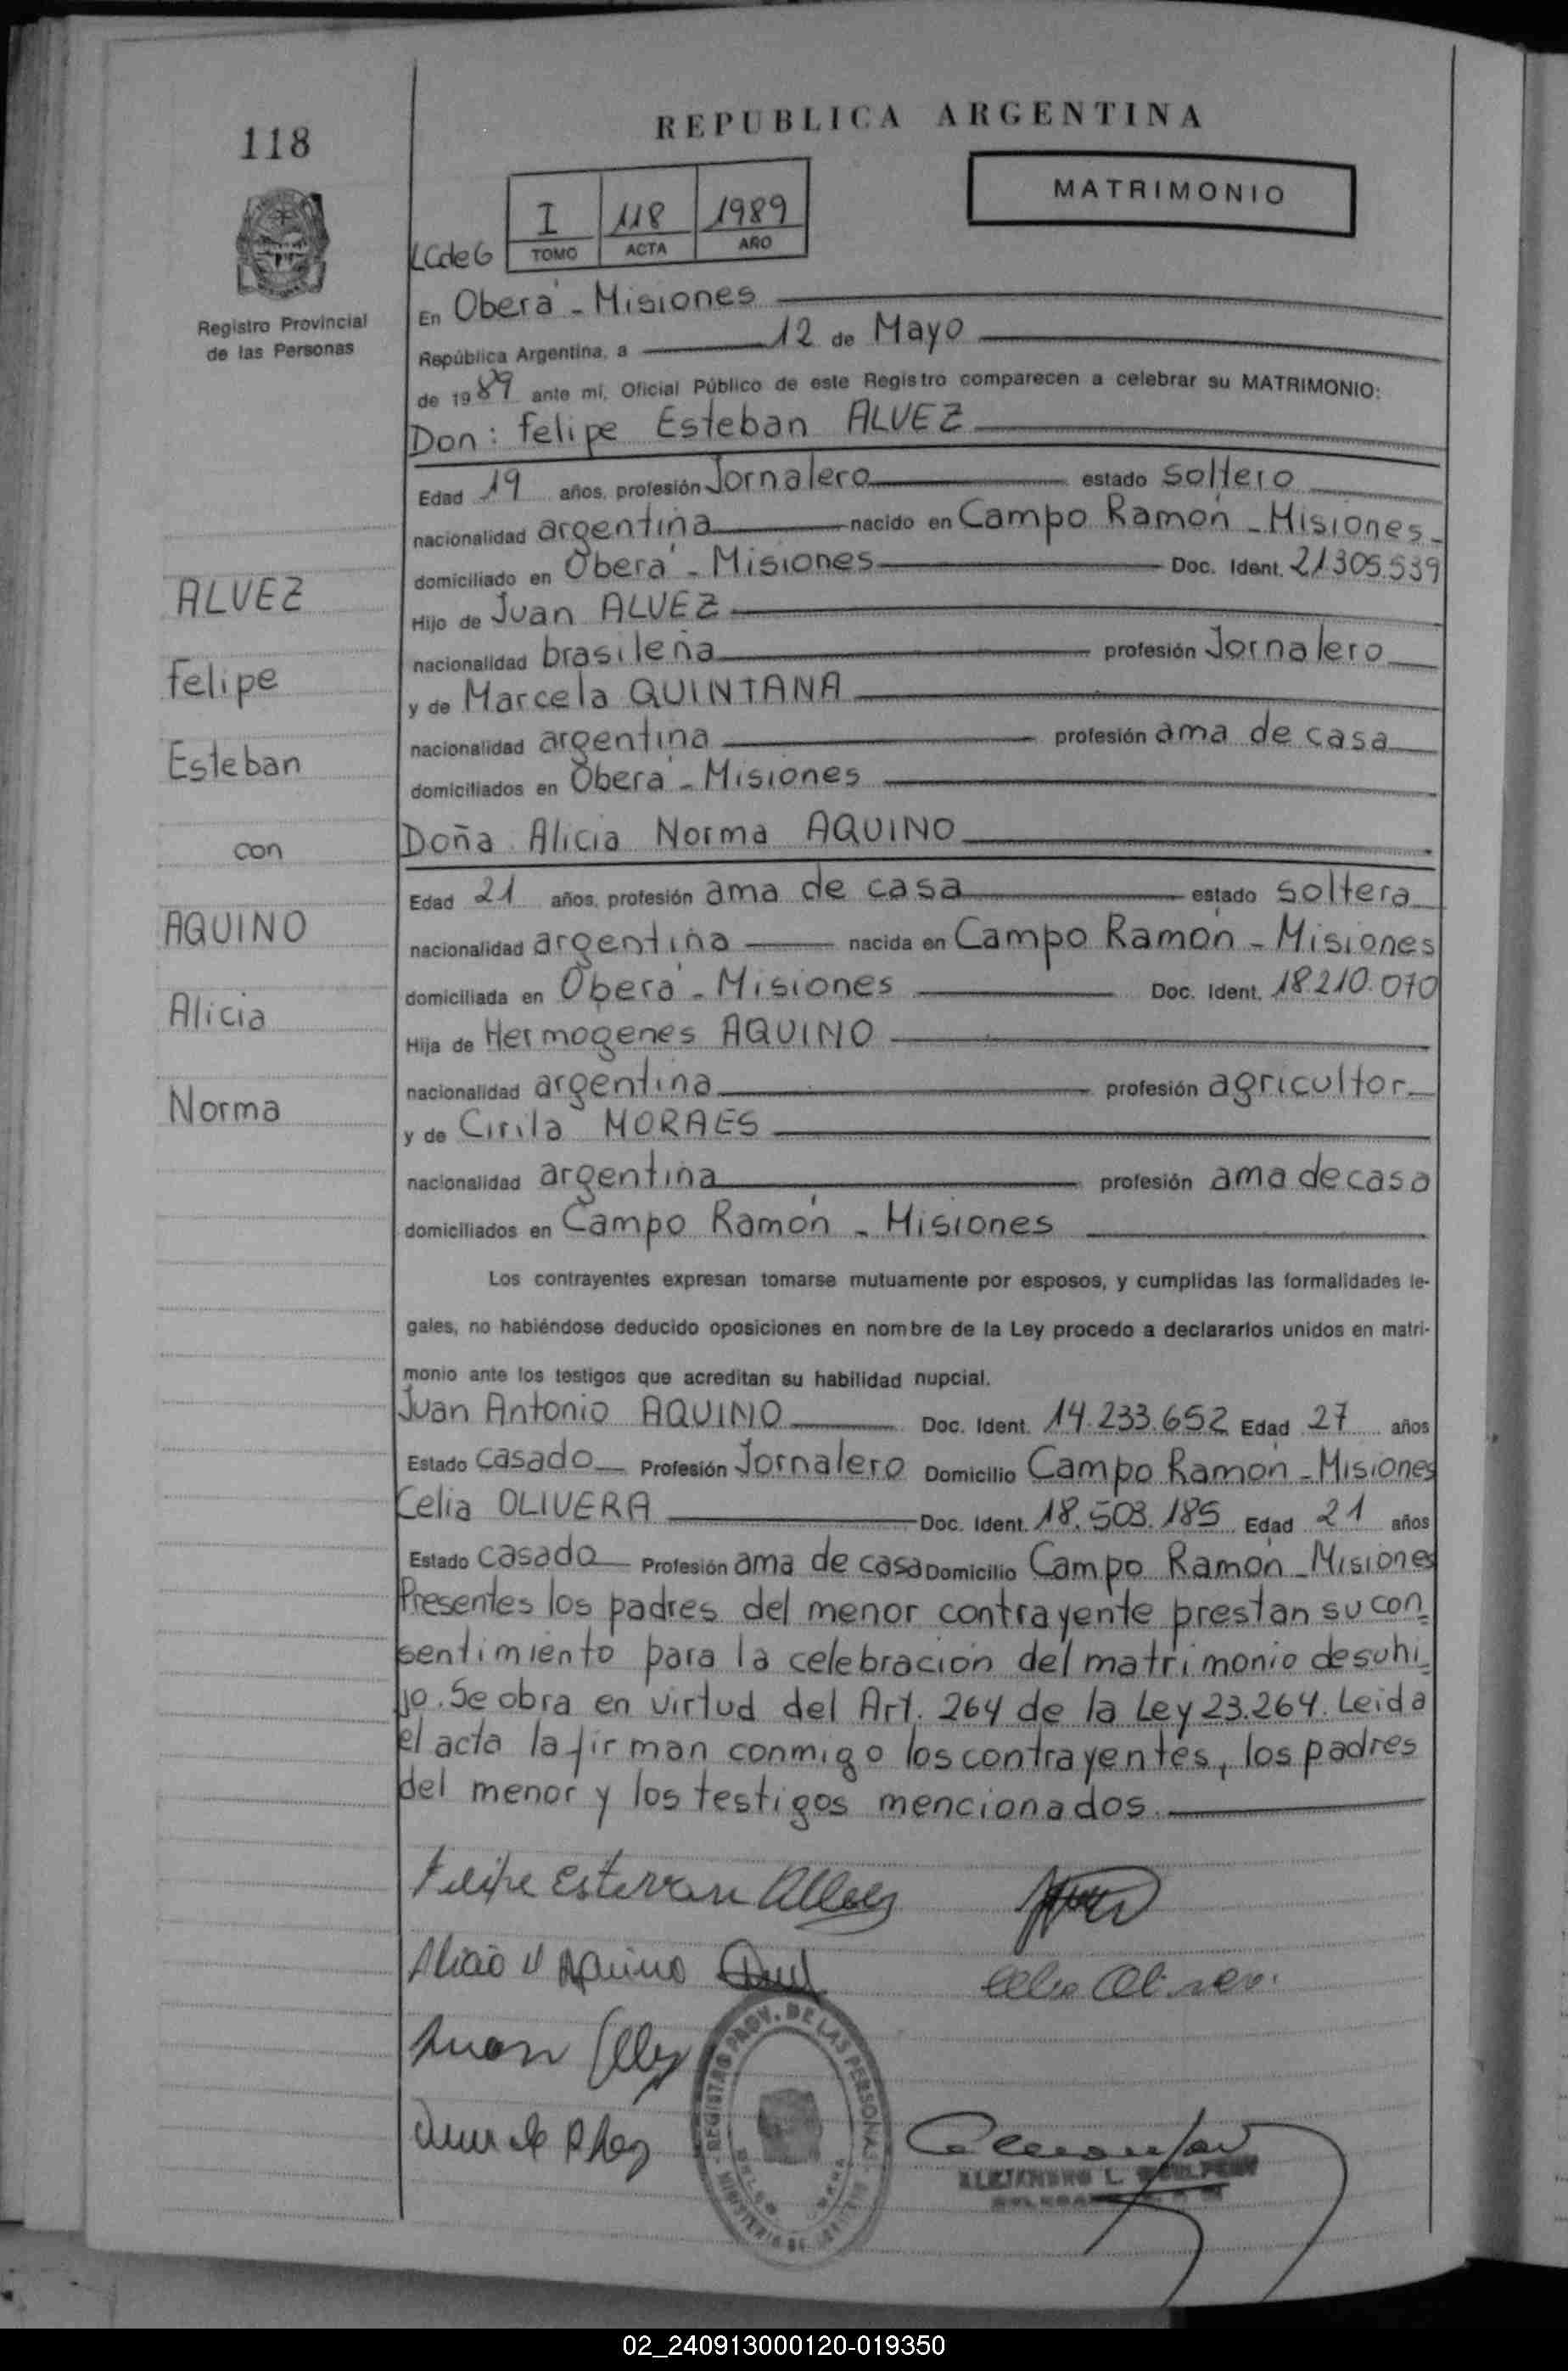 118
REPUBLICA ARGENTINA
MATRIMONIO
I 118 1989
TOMO ACTA AÑO
LCdeG
Registro Provincial
de las Personas
En Oberá - Misiones
República Argentina, a 12 de Mayo
de 1989 ante mí, Oficial Público de este Registro comparecen a celebrar su MATRIMONIO:
Don: Felipe Esteban ALVEZ
Edad 19 años, profesión Jornalero estado soltero
nacionalidad argentina nacido en Campo Ramón - Misiones
domiciliado en Oberá - Misiones Doc. Ident. 21.305.539
Hijo de Juan ALVEZ
nacionalidad brasileña profesión Jornalero
y de Marcela QUINTANA
nacionalidad argentina profesión ama de casa
domiciliados en Oberá - Misiones
Doña Alicia Norma AQUINO
Edad 21 años, profesión ama de casa estado soltera
nacionalidad argentina nacida en Campo Ramón - Misiones
domiciliada en Oberá - Misiones Doc. Ident. 18.210.070
Hija de Hermogenes AQUINO
nacionalidad argentina profesión agricultor
y de Cirila MORAES
nacionalidad argentina profesión ama de casa
domiciliados en Campo Ramón - Misiones
ALVEZ
Felipe
Esteban
con
AQUINO
Alicia
Norma
Los contrayentes expresan tomarse mutuamente por esposos, y cumplidas las formalidades le-
gales, no habiéndose deducido oposiciones en nombre de la Ley procedo a declararlos unidos en matri-
monio ante los testigos que acreditan su habilidad nupcial.
Juan Antonio AQUINO Doc. Ident. 14.233.652 Edad 27 años
Estado casado Profesión Jornalero Domicilio Campo Ramón - Misiones
Celia OLIVERA Doc. Ident. 18.503.185 Edad 21 años
Estado casada Profesión ama de casa Domicilio Campo Ramón - Misiones
Presentes los padres del menor contrayente prestan su con=
sentimiento para la celebración del matrimonio de su hi=
jo. Se obra en virtud del Art. 264 de la Ley 23.264. Leida
el acta la firman conmigo los contrayentes, los padres
del menor y los testigos mencionados.
Felipe Estevan Alvez
Alicia N Aquino
Juan
REGISTRO PROV. DE LAS PERSONAS
MINISTERIO DE
ALEJANDRO L.
02_240913000120-019350